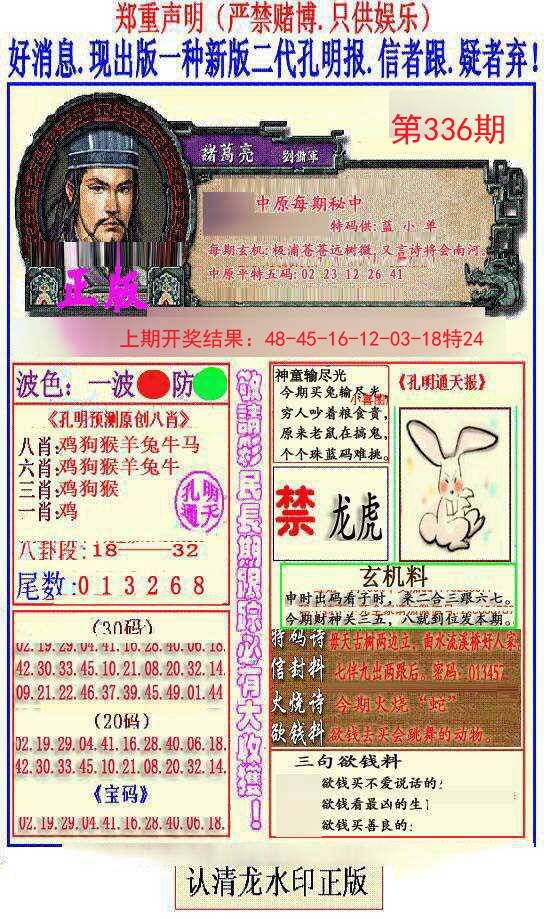 郑重声明（严禁赌博.只供娱乐）
好消息.现出版一种新版二代孔明报.信者跟.疑者弃!
第336期
諸葛亮 劉備軍
中原每期秘中
特码供:蓝 小 单
每期玄机:极浦苍苍远树微,又言诗将会南河。
中原平特五码:02 23 12 26 41
正版
上期开奖结果：48-45-16-12-03-18特24
波色：一波 防
《孔明预测原创八肖》
八肖:鸡狗猴羊兔牛马
六肖:鸡狗猴羊兔牛
三肖:鸡狗猴
一肖:鸡
孔明通天
八卦段:18——32
尾数:013268
(30码)
02.19.29.04.41.16.28.40.06.18.
42.30.33.45.10.21.08.20.32.14.
09.21.22.46.37.39.45.49.01.44
(20码)
02.19.29.04.41.16.28.40.06.18.
42.30.33.45.10.21.08.20.32.14.
《宝码》
02.19.29.04.41.16.28.40.06.18.
敬請彩民長期跟踪必有大收獲！
神童输尽光
今期买兔输尽光,
穷人吵着粮食贵,
原来老鼠在搞鬼,
个个珠蓝码难挑。
《孔明通天报》
禁 龙虎
玄机料
申时出码看子时，来二合三跟六七。
今期财神关三五，八就到位发本期。
特码诗 毋天古树两边立,曲水流溪桥好人家
信封料 七伴九出两跟后。密码:013457
火烧诗 今期火烧“蛇”
欲钱料 欲钱去买会跳舞的动物。
三句欲钱料
欲钱买不爱说话的:
欲钱看最凶的生
欲钱买善良的:
认清龙水印正版